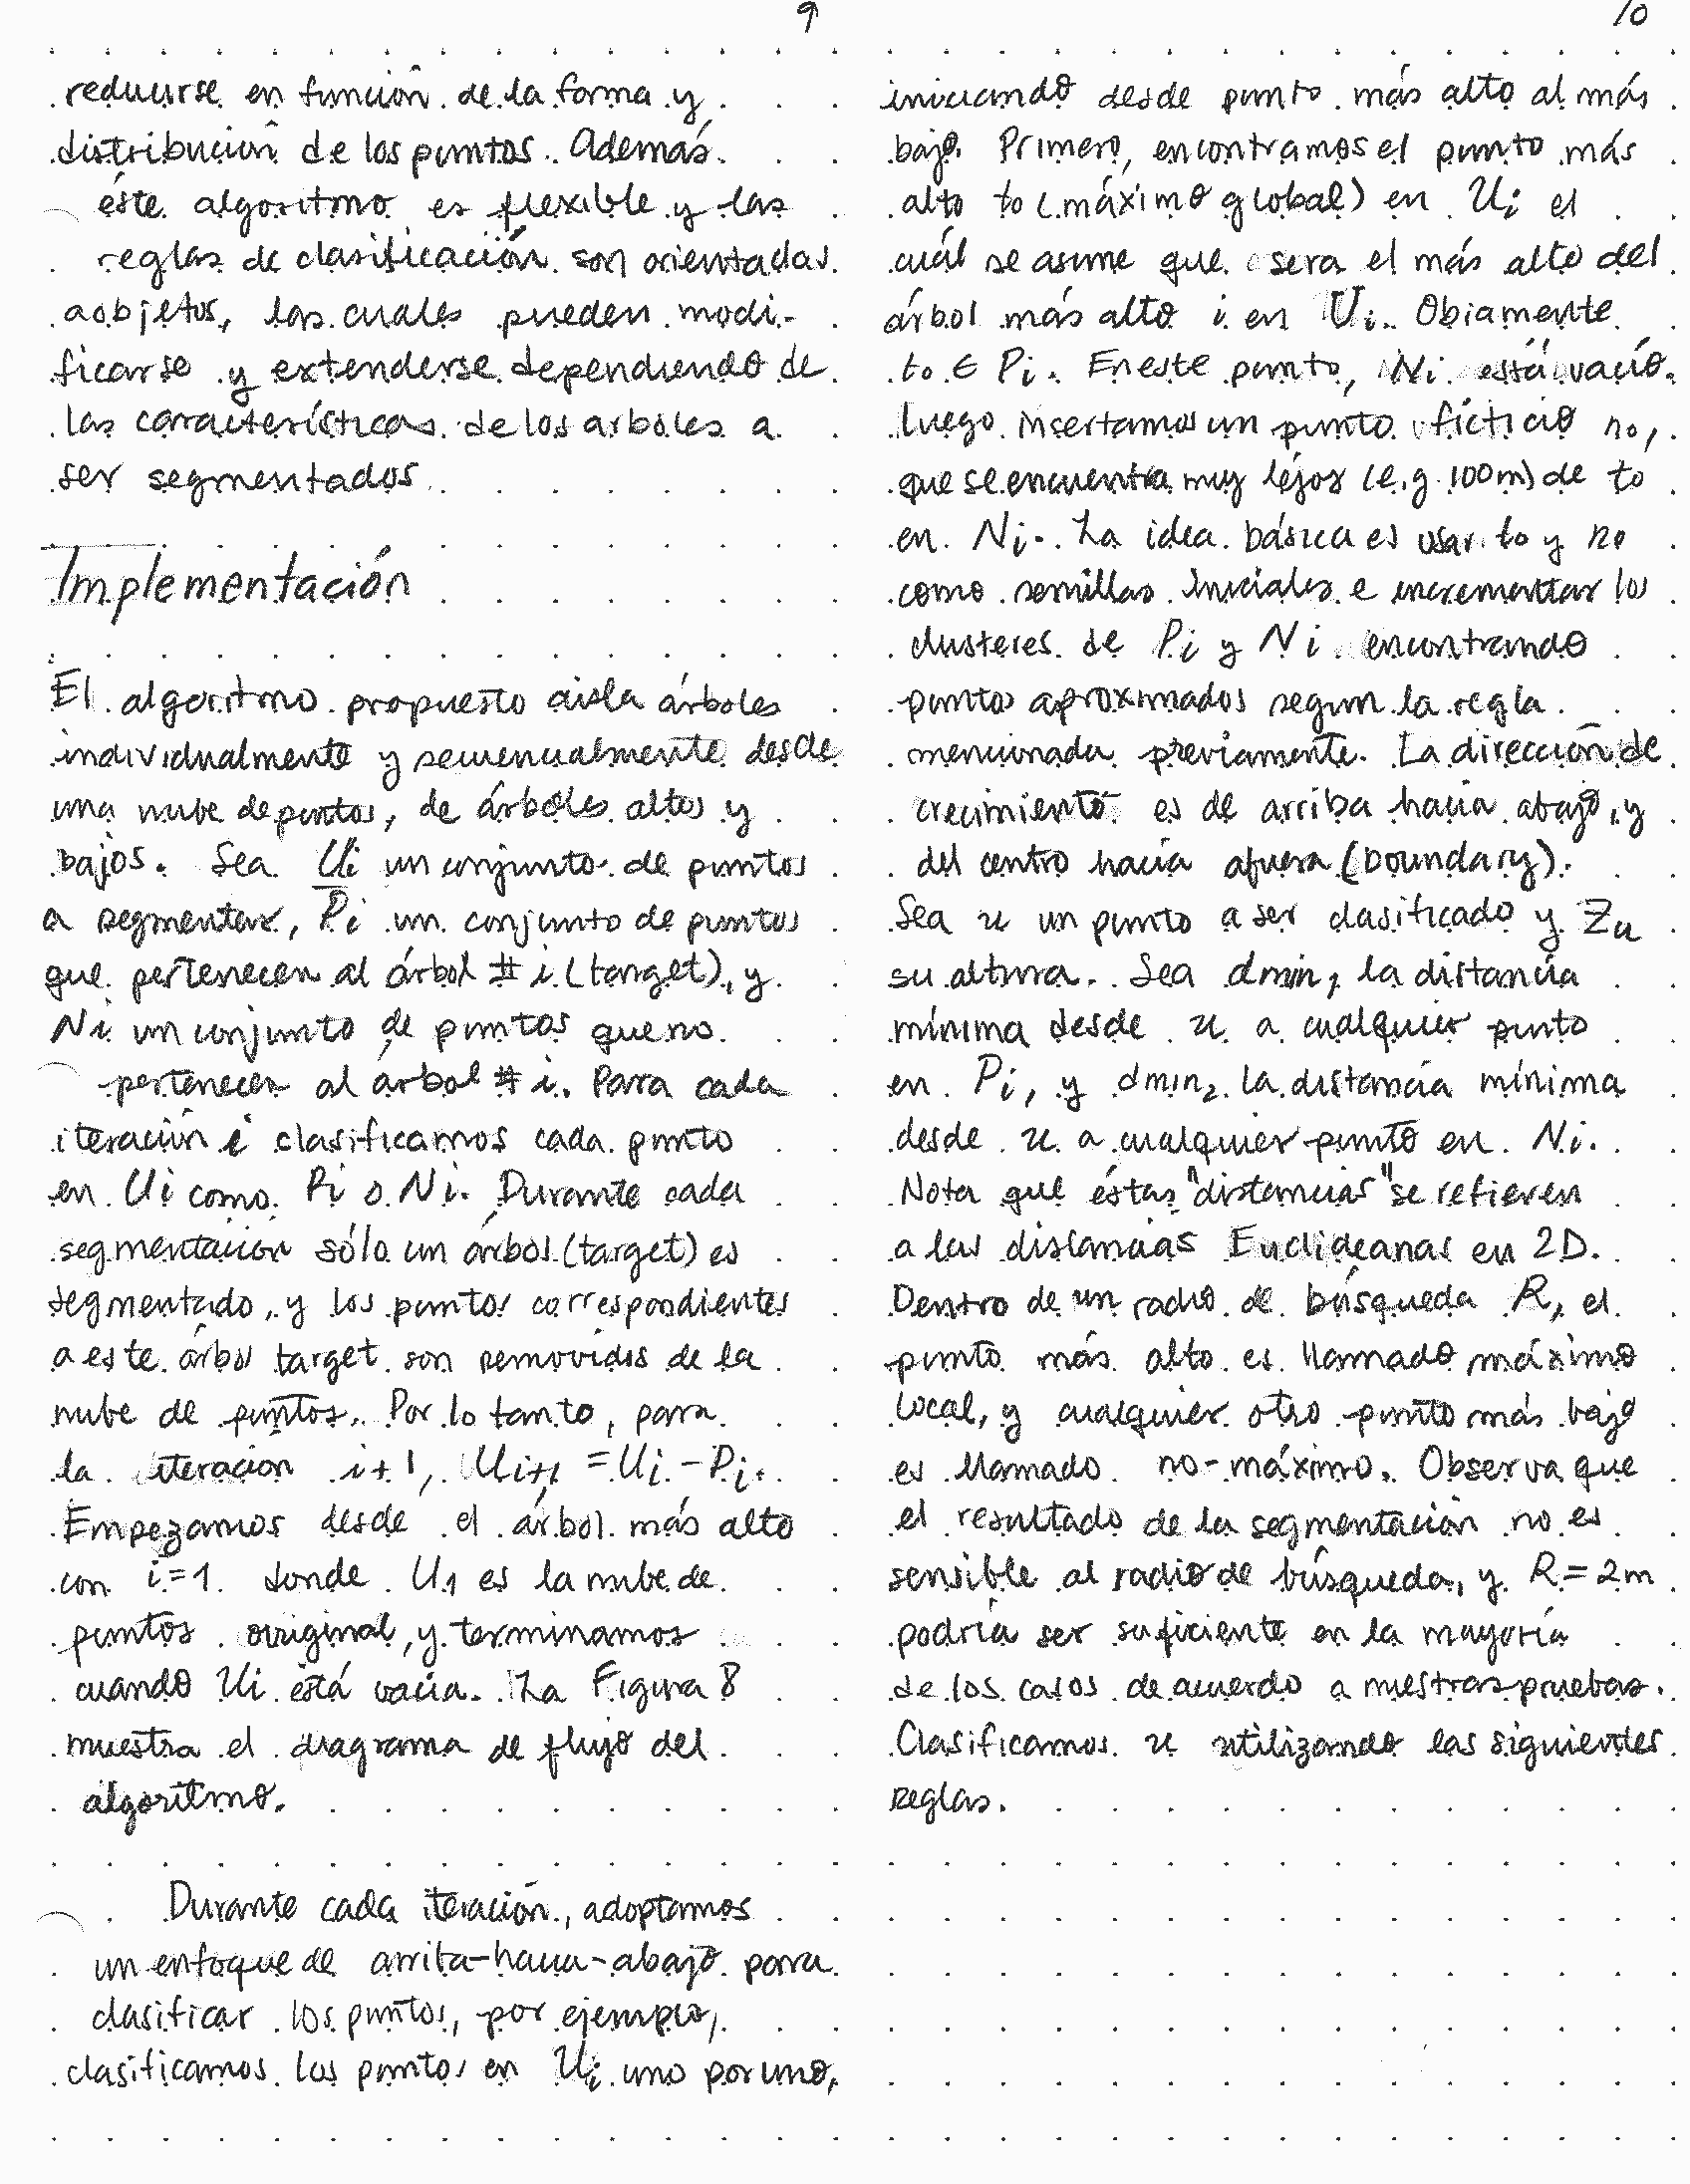 9
reducirse en función de la forma y
distribución de los puntos. Además
éste algoritmo es flexible y las
reglas de clasificación son orientadas
a objetos, las cuales pueden modi-
ficarse y extenderse dependiendo de
las características de los arboles a
ser segmentados.
Implementación
El algoritmo propuesto aisla árboles
individualmente y secuencialmente desde
una nube de puntos, de árboles altos y
bajos. Sea Ui un conjunto de puntos
a segmentar, Pi un conjunto de puntos
que pertenecen al árbol # i (target), y
Ni un conjunto de puntos que no
pertenecen al árbol # i. Para cada
iteración i clasificamos cada punto
en Ui como Pi o Ni. Durante cada
segmentación sólo un árbol (target) es
segmentado, y los puntos correspondientes
a este árbol target son removidos de la
nube de puntos. Por lo tanto, para
la iteración i+1, Ui+1 = Ui - Pi.
Empezamos desde el árbol más alto
con i=1 donde U1 es la nube de
puntos original, y terminamos
cuando Ui está vacia. La Figura 8
muestra el diagrama de flujo del
algoritmo.
Durante cada iteración, adoptamos
un enfoque de arriba-hacia-abajo para
clasificar los puntos, por ejemplo,
clasificamos los puntos en Ui uno por uno,
10
iniciando desde punto más alto al más
bajo. Primero, encontramos el punto más
alto to (máximo global) en Ui el
cuál se asume que sera el más alto del
árbol más alto i en Ui. Obiamente
to ∈ Pi. En este punto, Ni está vacío.
Luego insertamos un punto ficticio no,
que se encuentra muy lejos (e.g. 100m) de to
en Ni. La idea básica es usar to y no
como semillas iniciales e incrementar los
clusteres de Pi y Ni encontrando
puntos aproximados segun la regla
mencionada previamente. La dirección de
crecimiento es de arriba hacia abajo, y
del centro hacia afuera (boundary).
Sea u un punto a ser clasificado y Zu
su altura. Sea dmin1 la distancia
mínima desde u a cualquier punto
en Pi, y dmin2 la distancia mínima
desde u a cualquier punto en Ni.
Nota que éstas "distancias" se refieren
a las distancias Euclideanas en 2D.
Dentro de un radio de búsqueda R, el
punto más alto es llamado máximo
local, y cualquier otro punto más bajo
es llamado no-máximo. Observa que
el resultado de la segmentación no es
sensible al radio de búsqueda, y R = 2m
podría ser suficiente en la mayoría
de los casos de acuerdo a nuestras pruebas.
Clasificamos u utilizando las siguientes
reglas.